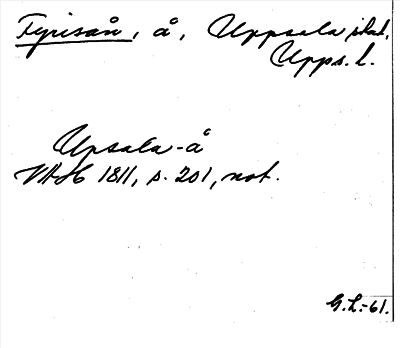 Fyrisån, å, Uppsala stad,
Upps. l.
Upsala-å
VAH 1811, s. 201, not.
G.L.-61.